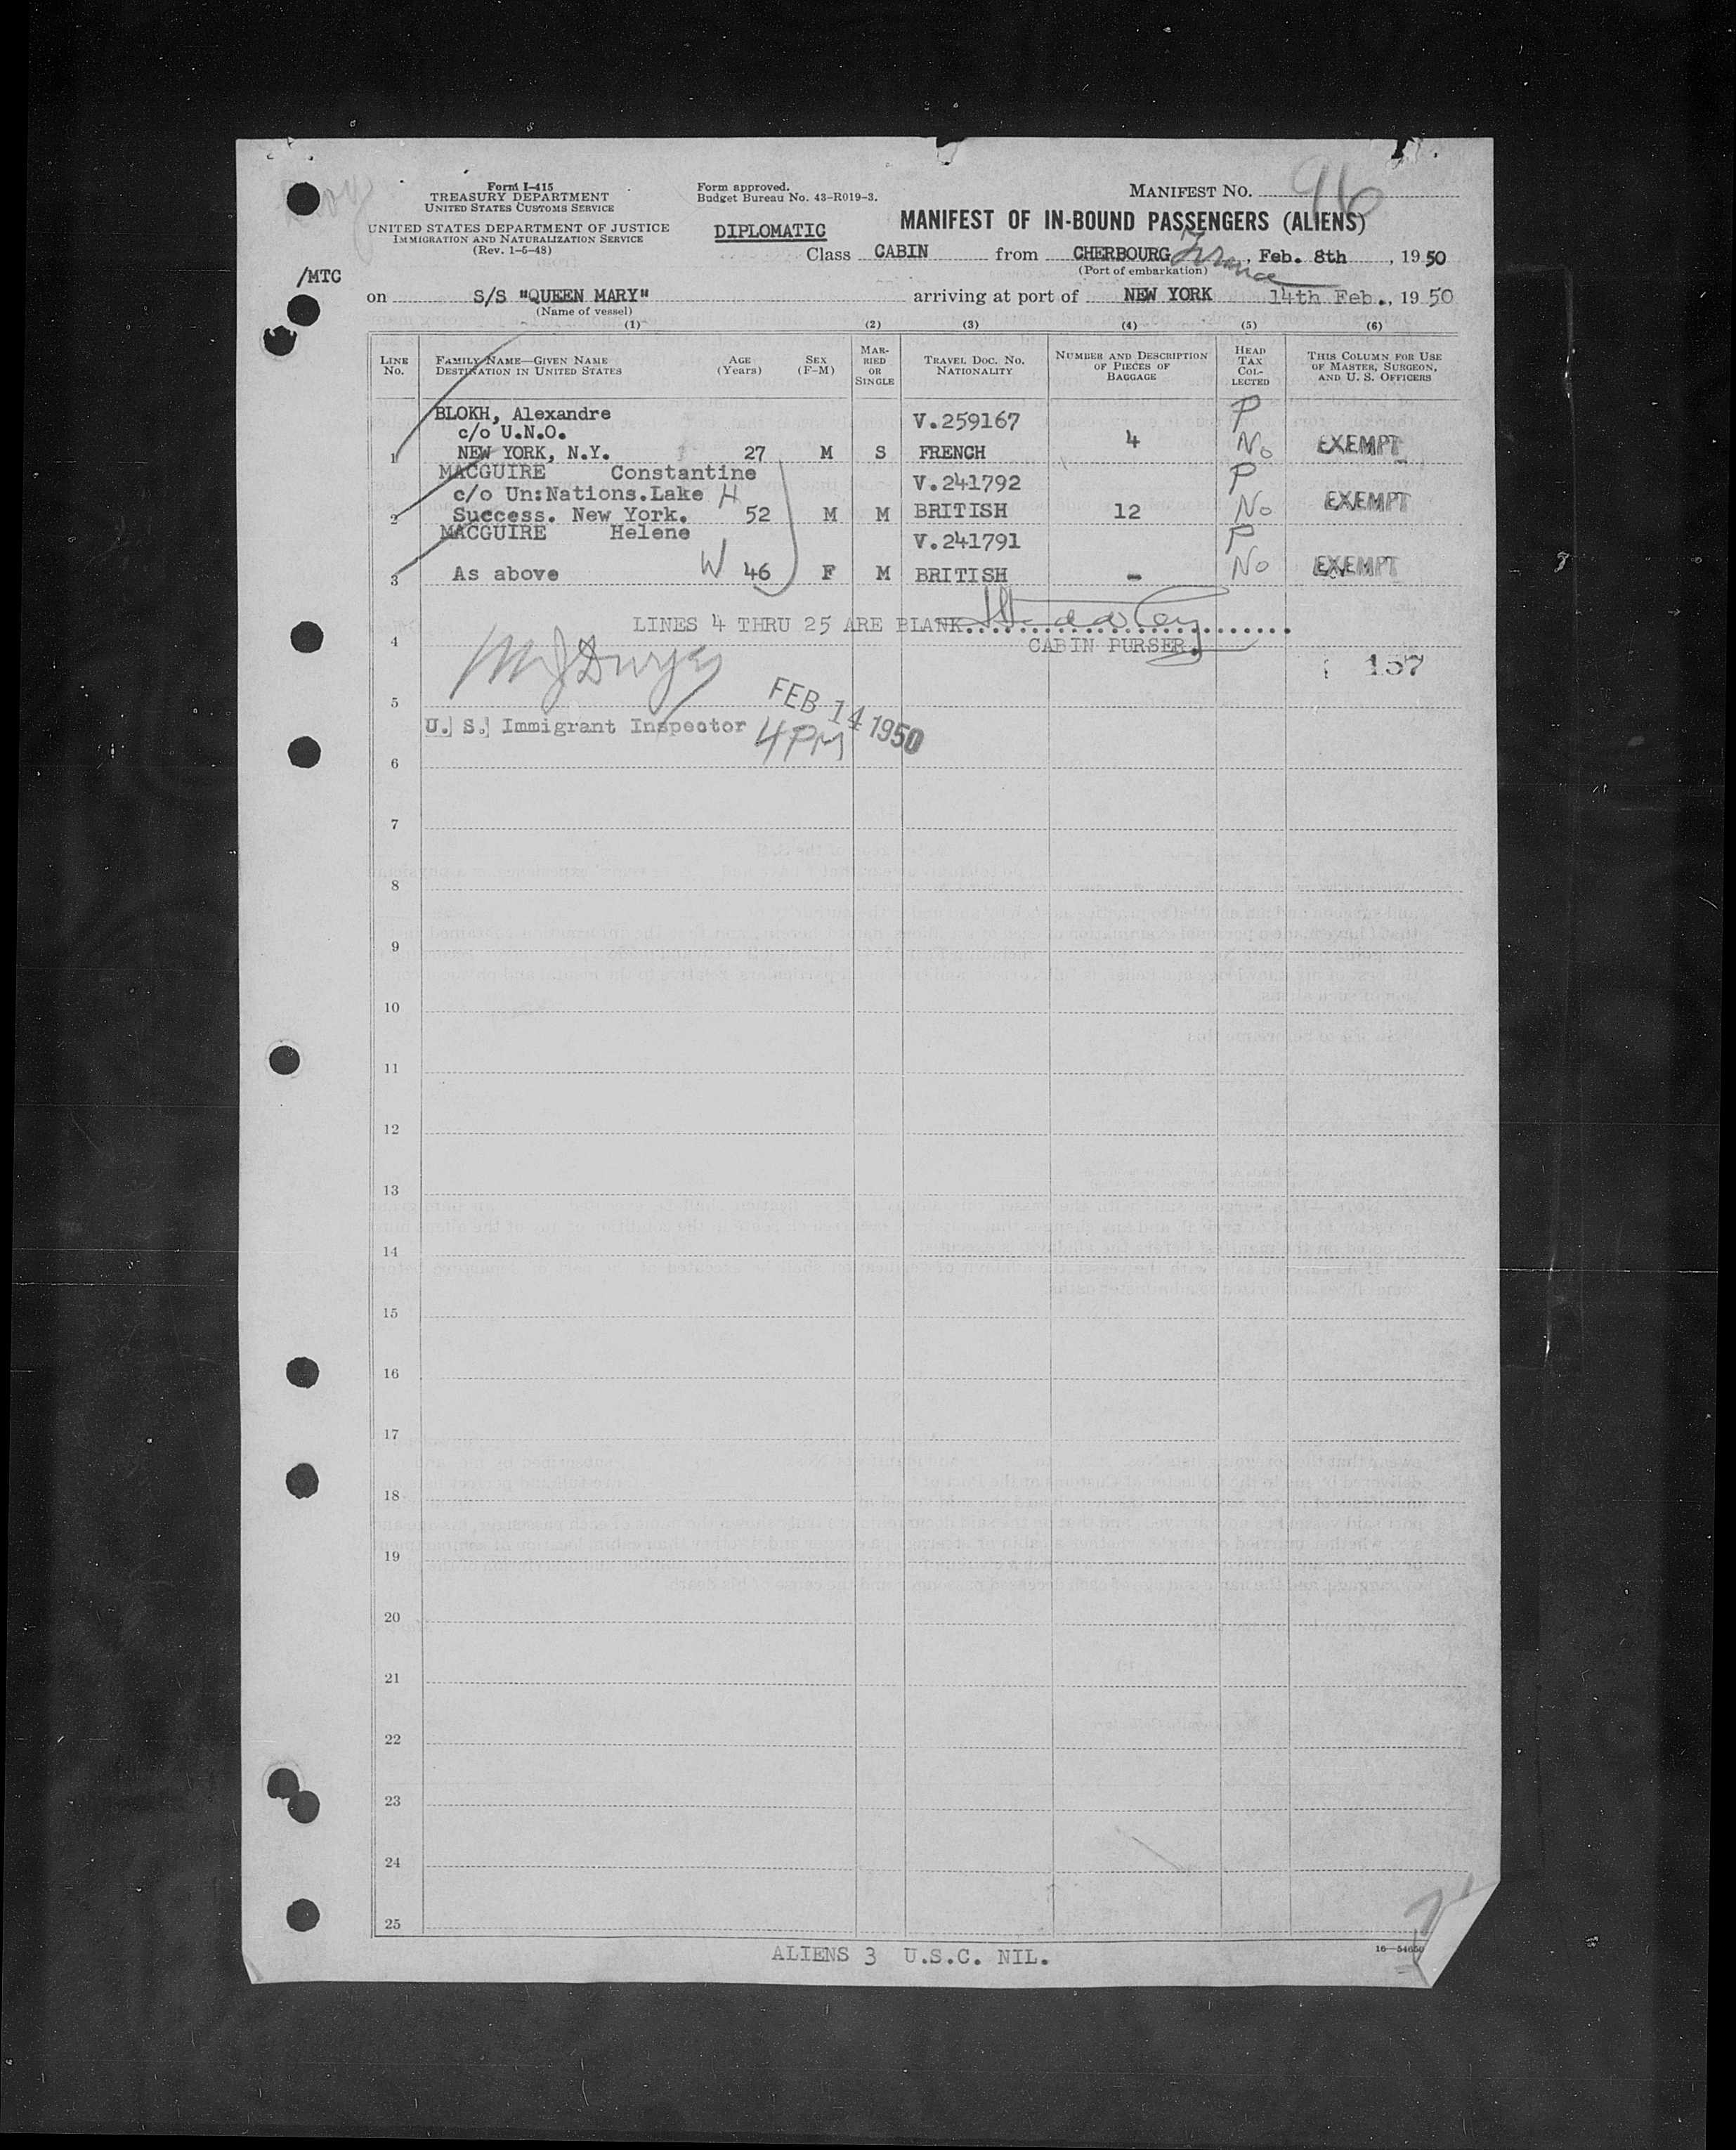 Form I-415
TREASURY DEPARTMENT
UNITED STATES CUSTOMS SERVICE
UNITED STATES DEPARTMENT OF JUSTICE
IMMIGRATION AND NATURALIZATION SERVICE
(Rev. 1-5-48)
Form approved.
Budget Bureau No. 43-R019-3.
MANIFEST NO. 96
MANIFEST OF IN-BOUND PASSENGERS (ALIENS)
DIPLOMATIC
Class CABIN from CHERBOURG France, Feb. 8th, 1950
(Port of embarkation)
/MTC
on S/S "QUEEN MARY" arriving at port of NEW YORK 14th Feb., 1950
(Name of vessel)
(1) (2) (3) (4) (5) (6)
LINE No.
FAMILY NAME—GIVEN NAME
DESTINATION IN UNITED STATES
AGE (Years)
SEX (F-M)
MARRIED OR SINGLE
TRAVEL DOC. NO. NATIONALITY
NUMBER AND DESCRIPTION OF PIECES OF BAGGAGE
HEAD TAX COLLECTED
THIS COLUMN FOR USE OF MASTER, SURGEON, AND U. S. OFFICERS
BLOKH, Alexandre V.259167 P
c/o U.N.O.
1 NEW YORK, N.Y. 27 M S FRENCH 4 No EXEMPT
MACGUIRE Constantine V.241792 P
c/o Un:Nations.Lake H
2 Success. New York. 52 M M BRITISH 12 No EXEMPT
MACGUIRE Helene V.241791 P
3 As above W 46 F M BRITISH - No EXEMPT
LINES 4 THRU 25 ARE BLANK
CABIN PURSER.
4
157
M J Dwyer
5
FEB 14 1950
U. S. Immigrant Inspector 4 PM
6
7
8
9
10
11
12
13
14
15
16
17
18
19
20
21
22
23
24
25
ALIENS 3 U.S.C. NIL.